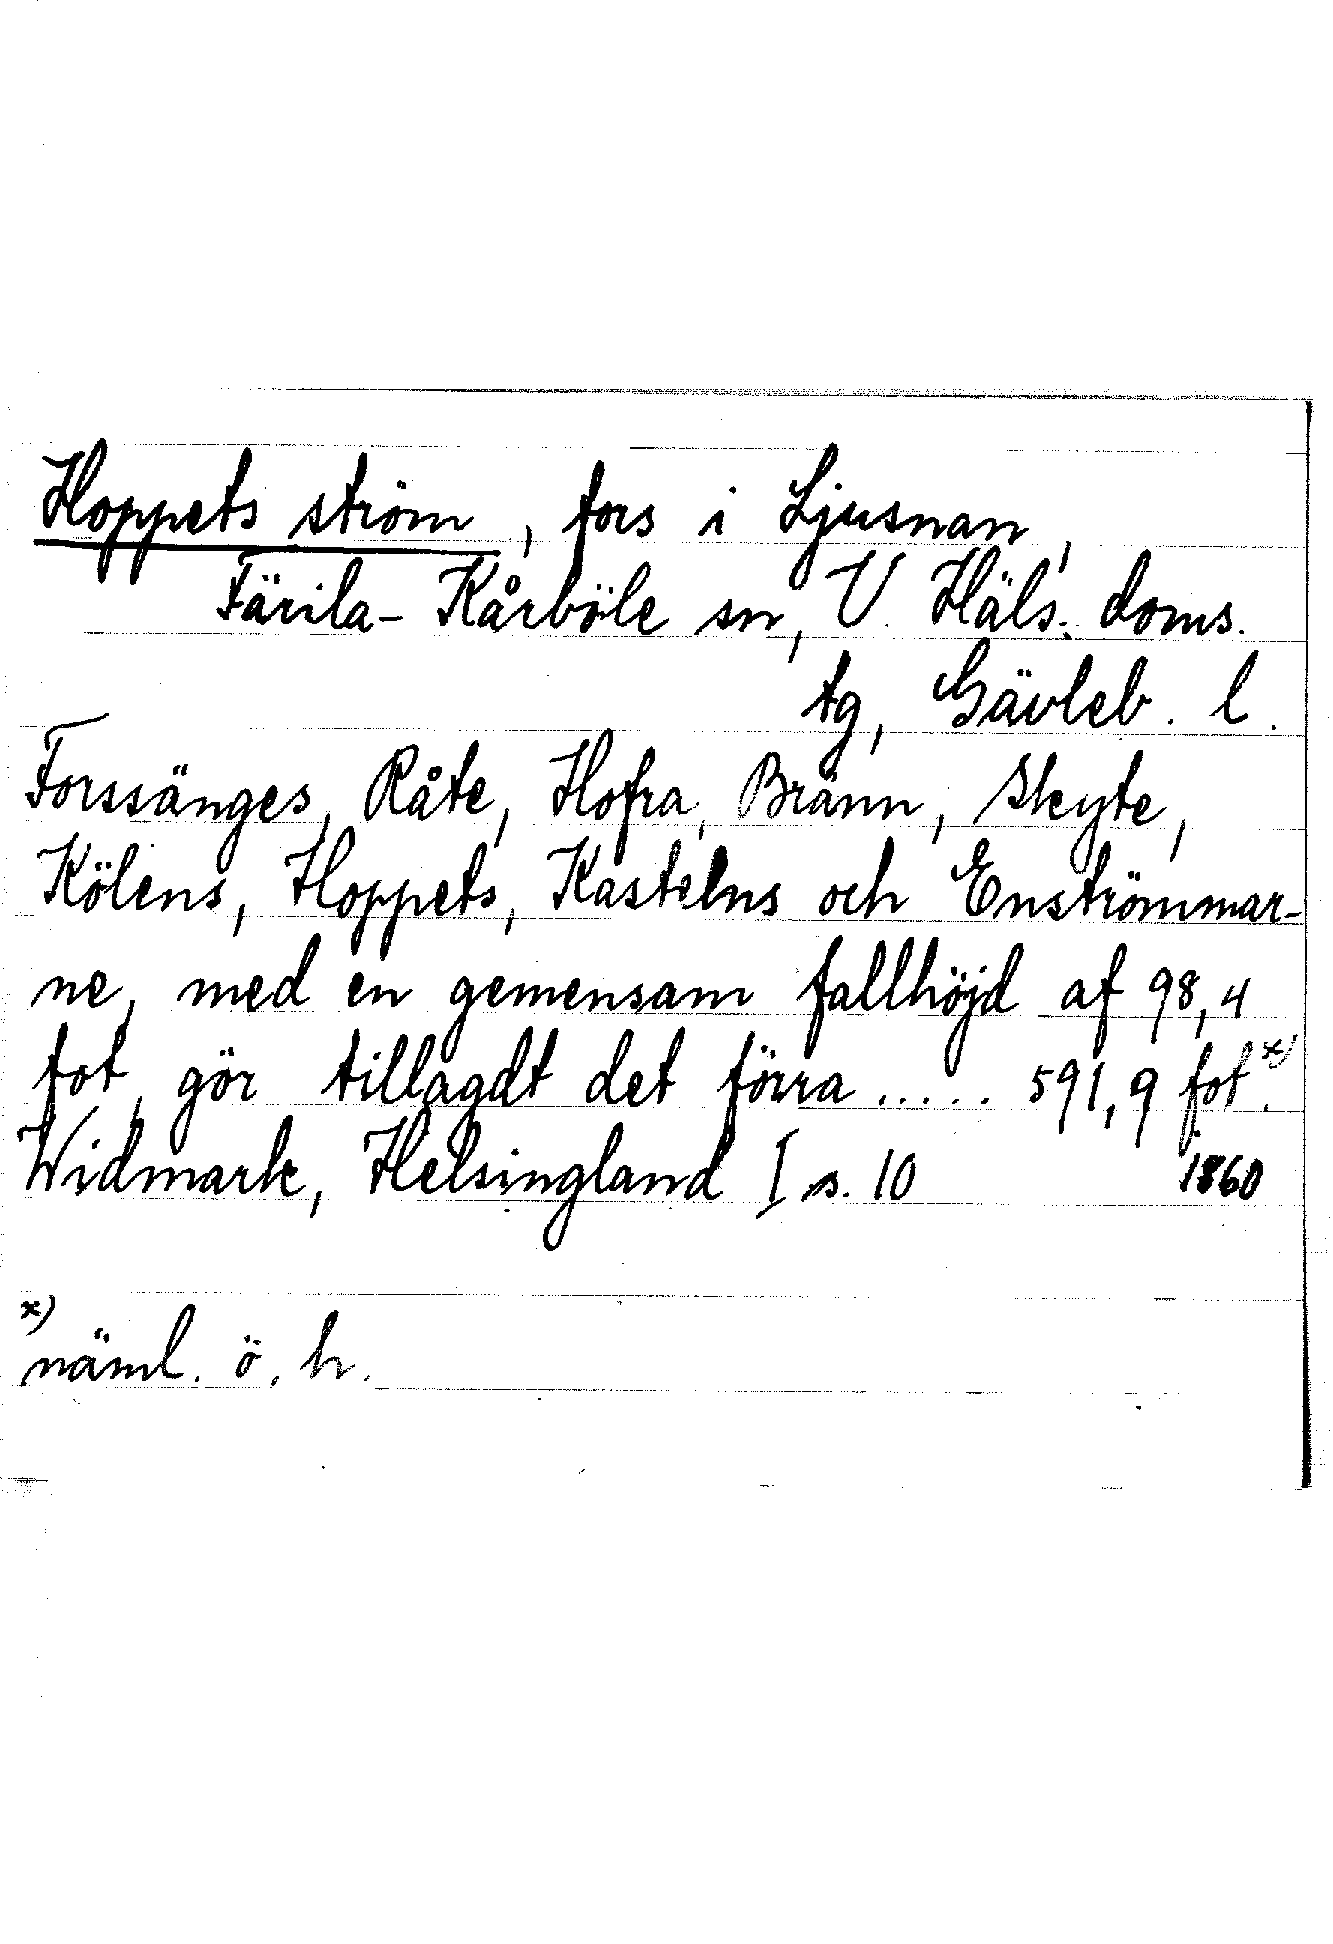 Hoppets ström, fors i Ljusnan,
Färila-Kårböle sn, V. Häls. doms.
tg, Gävleb. l.
Forssänges, Råte, Hofra, Bränn, Skyte,
Kölens, Hoppets, Kastelns och Enströmmar-
ne, med en gemensam fallhöjd af 98,4
fot, gör tillagdt det förra ..... 591,9 fot.x)
Widmark, Helsingland I s. 10 1860
x)
näml. ö. h.